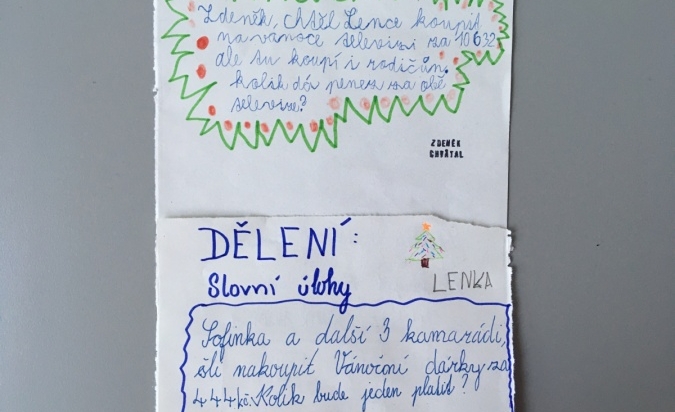 Zdeněk, chtěl Lence koupit
na vánoce televizi za 10 632
ale tu koupí i rodičům.
kolik dá penez za obě
televize?
ZDENĚK
CHVÁTAL
DĚLENÍ:
LENKA
Slovní úlohy
Sofinka a další 3 kamarádi,
šli nakoupit Vánoční dárky za
444kč. Kolik bude jeden platit?